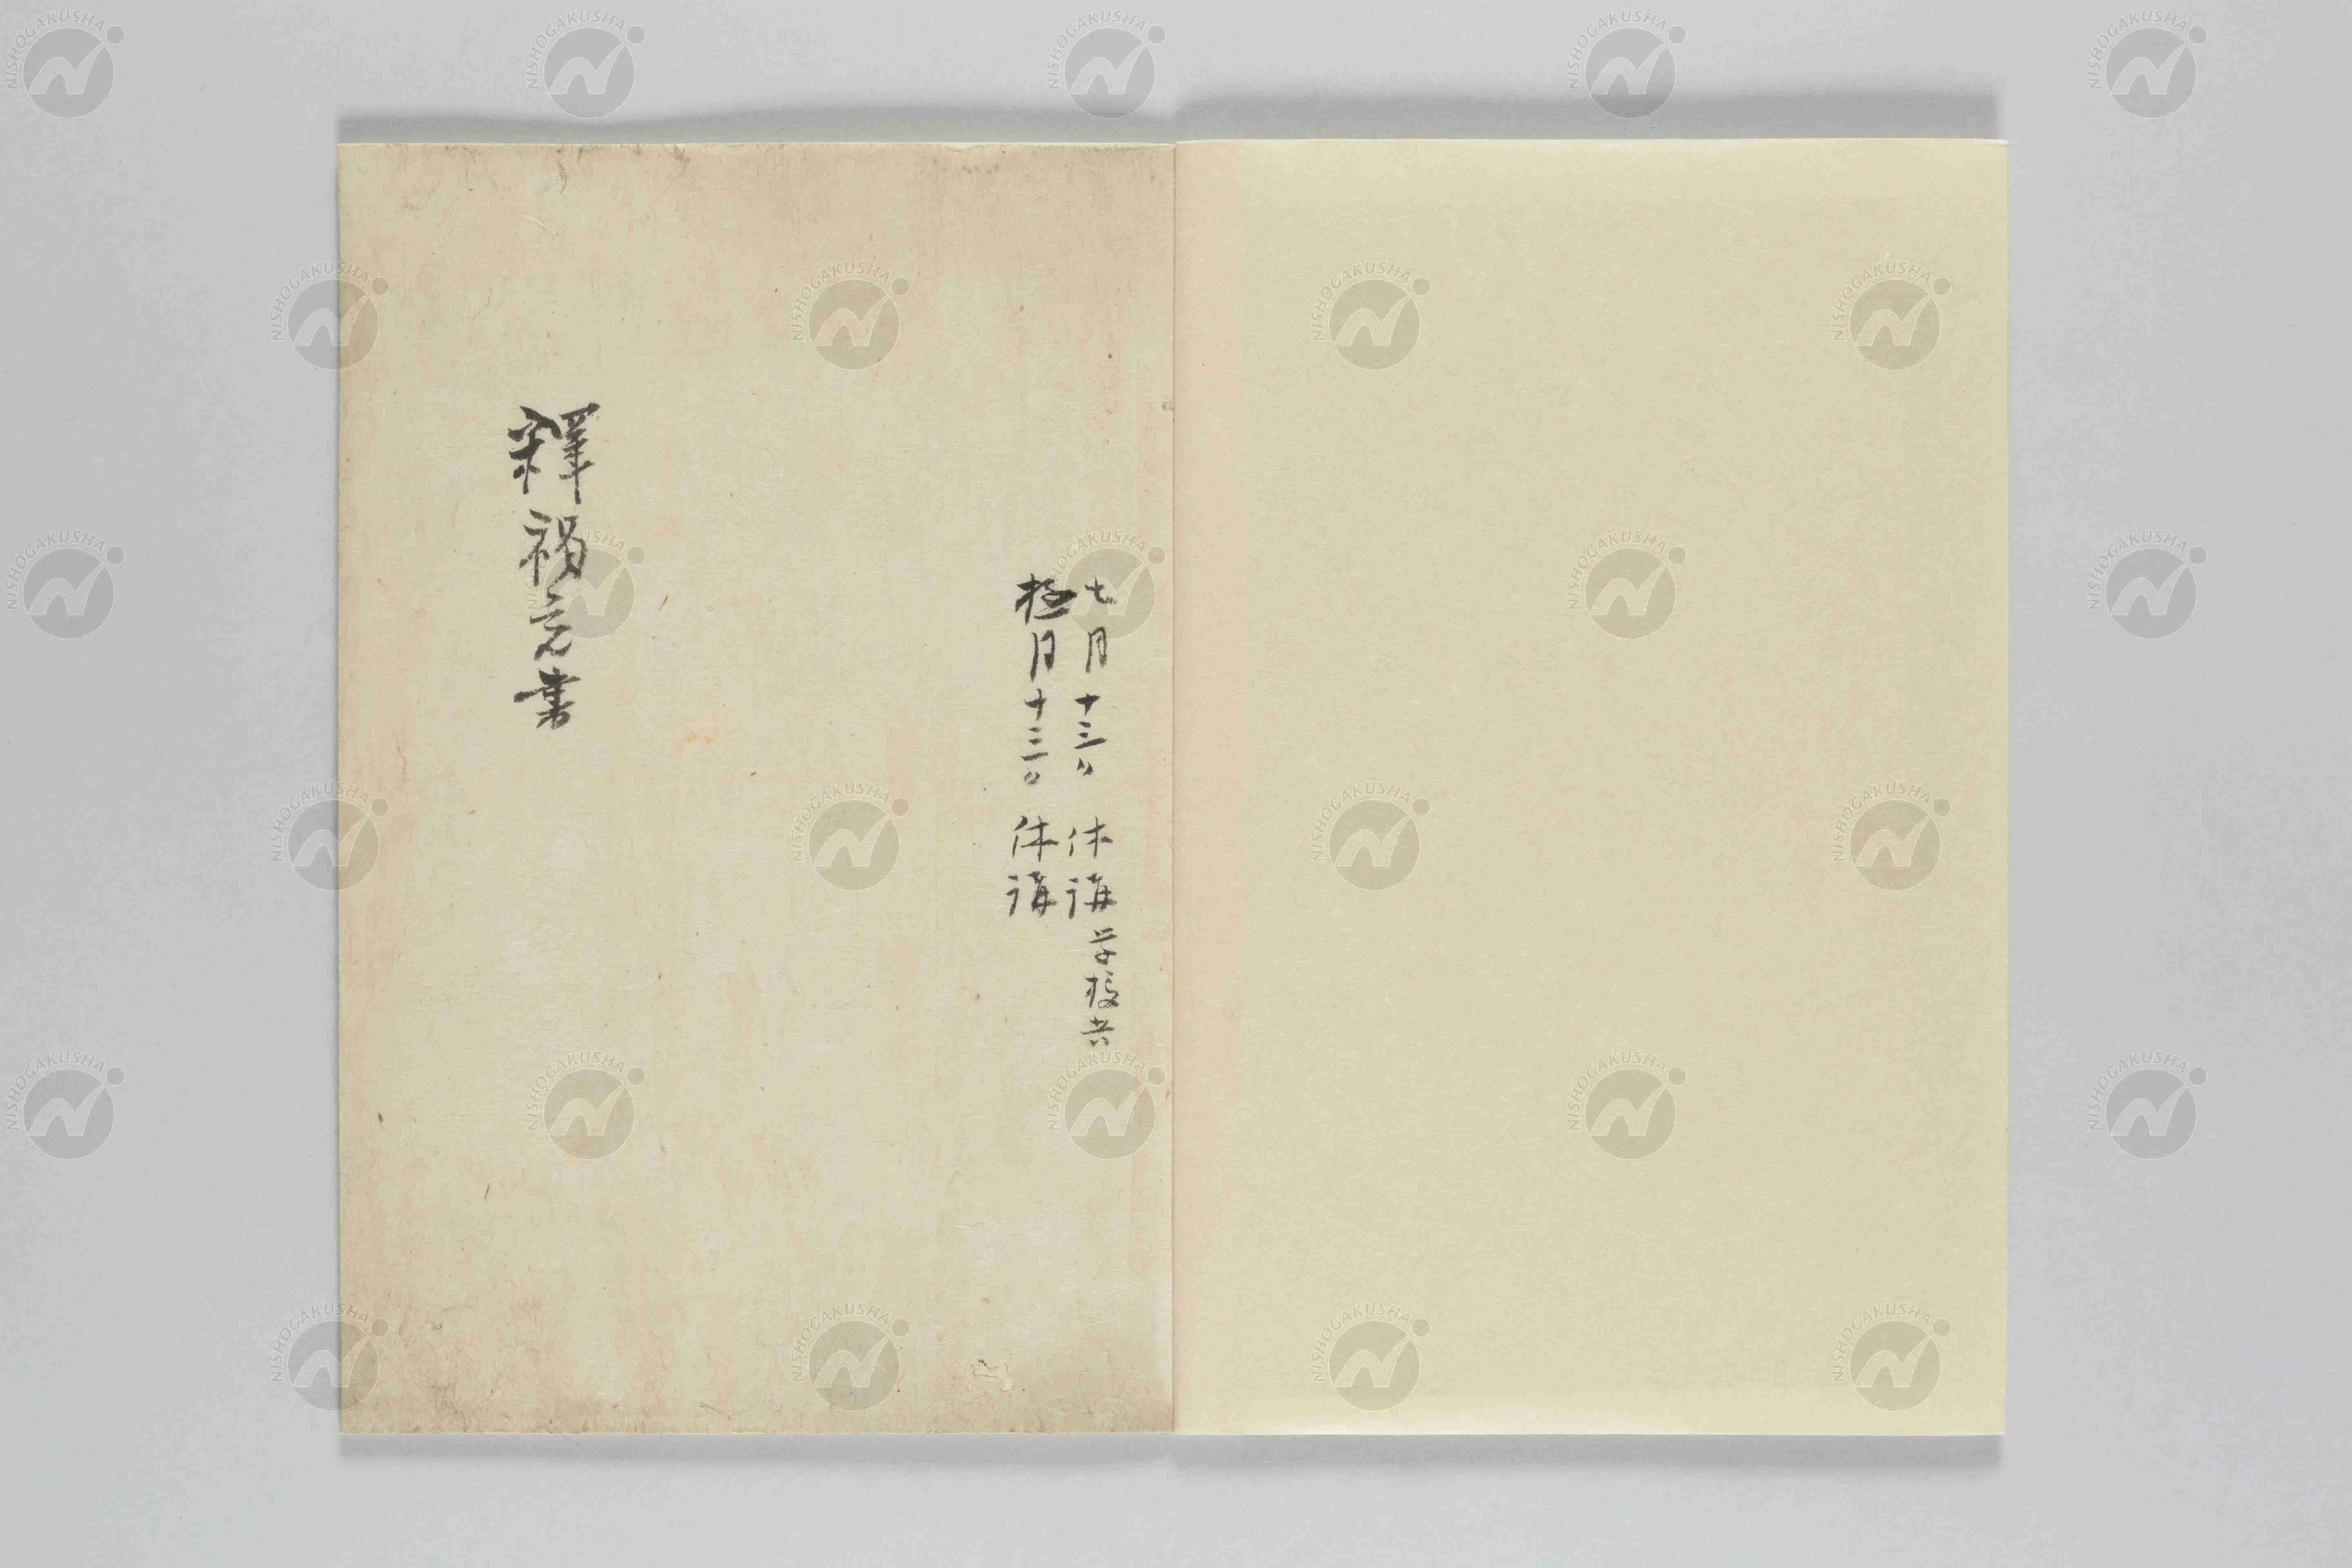 七月十三日 休講 学校共
極月十三日 休講
釋
NISHOGAKUSHA